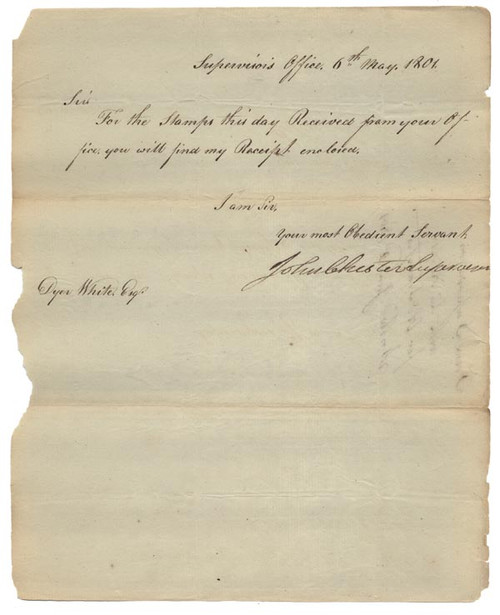 Supervisors Office, 6th May, 1801.
Sir
For the Stamps this day Received from your Of-
fice, you will find my Receipt enclosed.
I am Sir,
Your most Obedient Servant,
John Chester Supervisor
Dyer White, Esqr